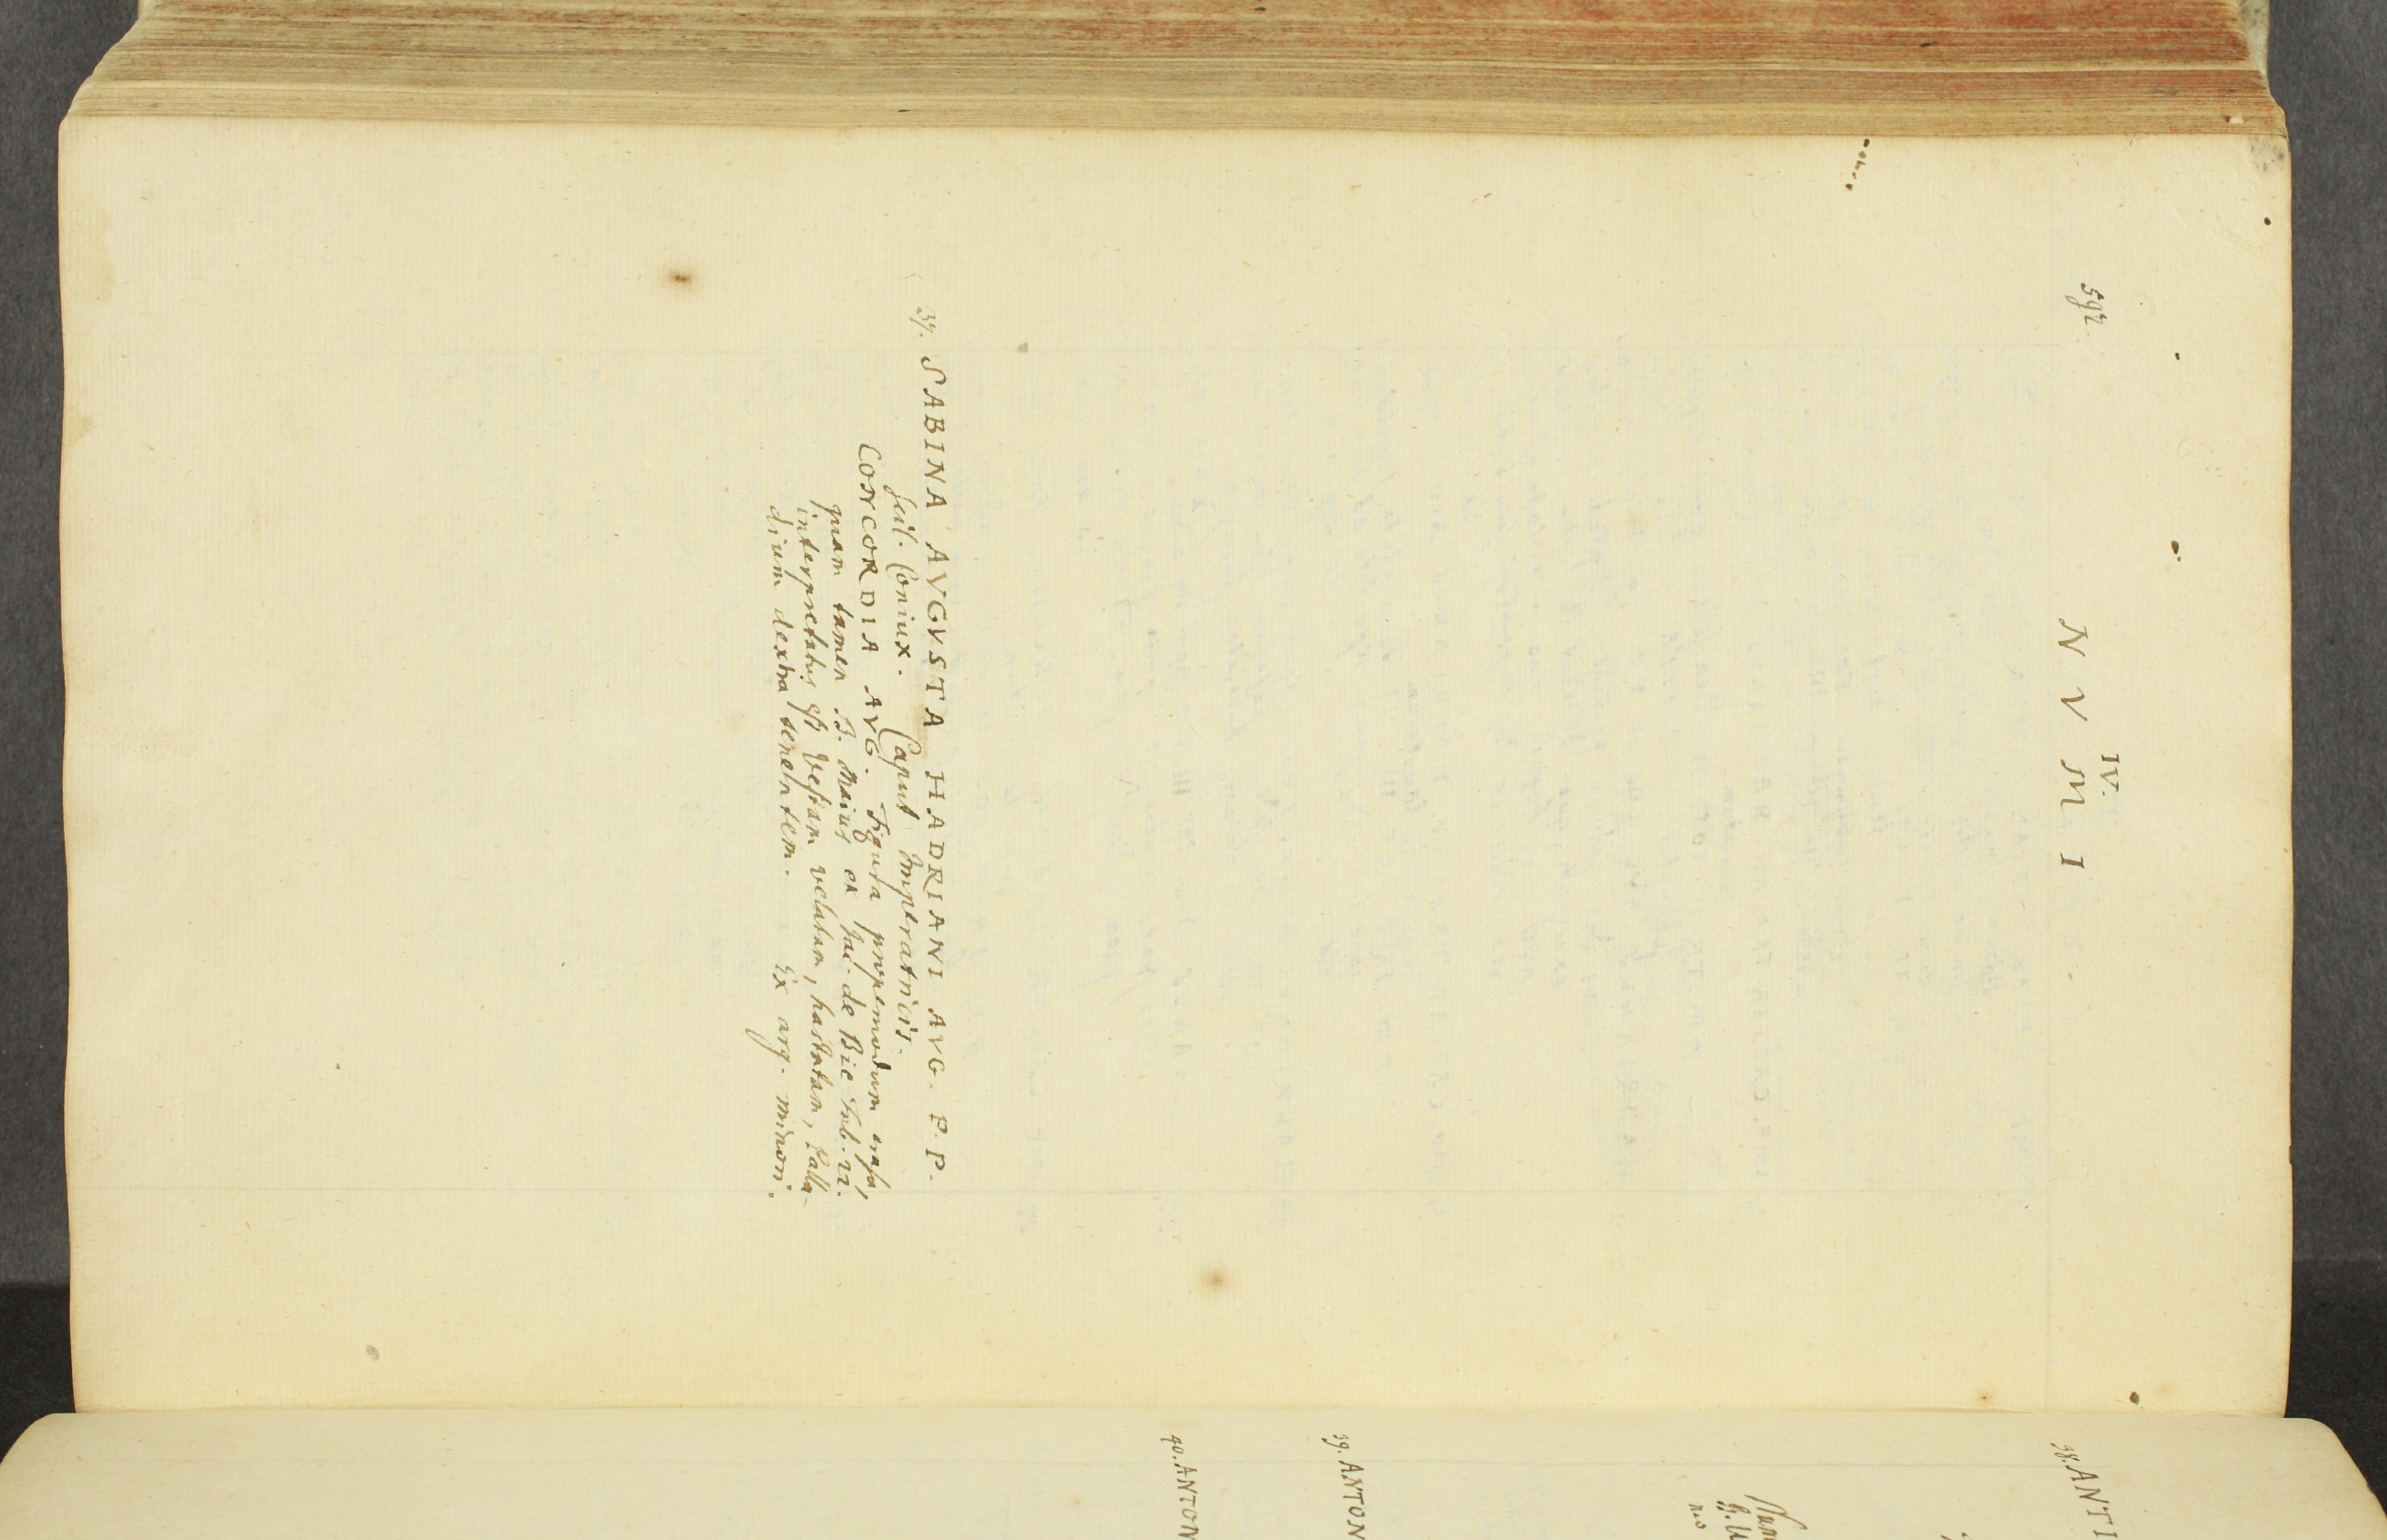 592
IV.
NVMI
37. SABINA AVGVSTA HADRIANI AVG. P.P.
scil. Coniux. Caput Imperatricis.
CONCORDIA AVG. Figura propemodum rasa,
quam tamen B. Maius ex Jac. de Bie
interpretatus est Vestam velatam, hastatam, Palla-
dium dextra tenentem. Ex arg. minori.
38. ANTI
39. ANTON
40. ANTON